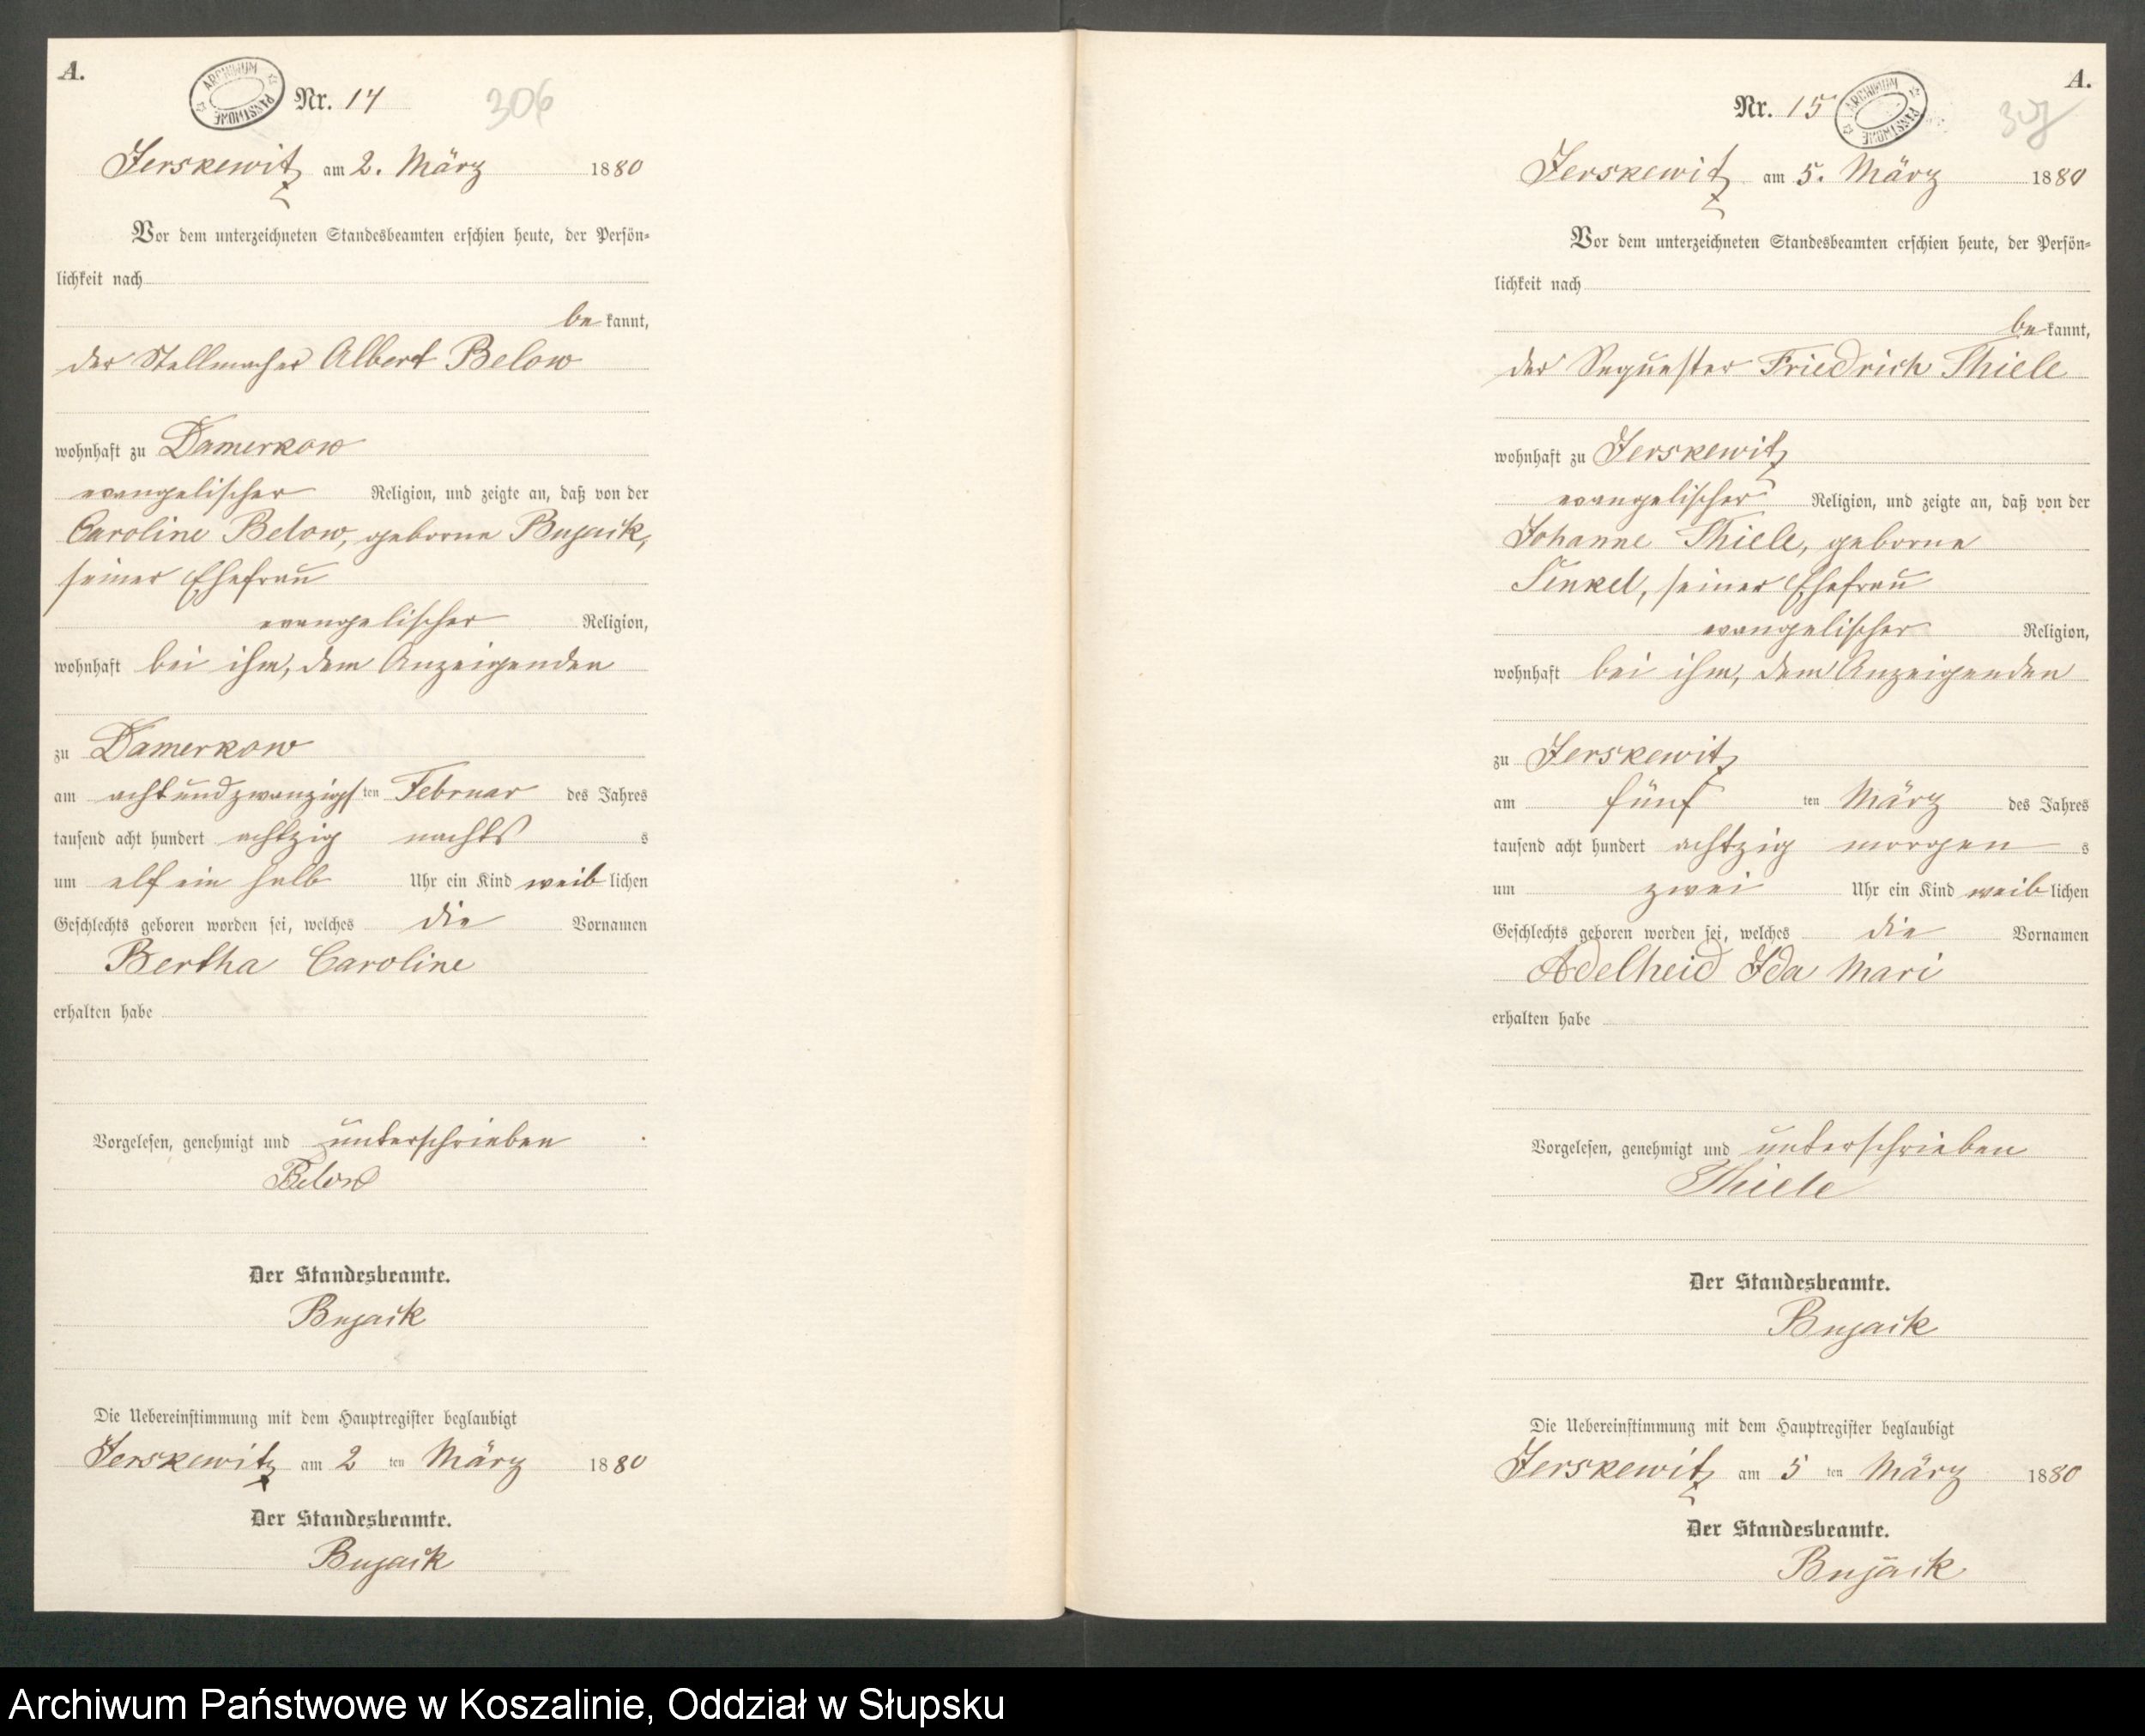 A.
ARCHIWUM PAŃSTWOWE
Nr. 14
306
Jerskewitz am 2. März 1880
Vor dem unterzeichneten Standesbeamten erschien heute, der Persön-
lichkeit nach
be kannt,
der Stellmacher Albert Below
wohnhaft zu Damerkow
evangelischer Religion, und zeigte an, daß von der
Caroline Below, geborne Bujack,
seiner Ehefrau
evangelischer Religion,
wohnhaft bei ihm, dem Anzeigenden
zu Damerkow
am achtundzwanzigs ten Februar des Jahres
tausend acht hundert achtzig nachts s
um elf ein halb Uhr ein Kind weib lichen
Geschlechts geboren worden sei, welches die Vornamen
Bertha Caroline
erhalten habe
Vorgelesen, genehmigt und unterschrieben
Below
Der Standesbeamte.
Bujack
Die Uebereinstimmung mit dem Hauptregister beglaubigt
Jerskewitz am 2 ten März 1880
Der Standesbeamte.
Bujack
A.
Nr. 15
ARCHIWUM PAŃSTWOWE
307
Jerskewitz am 5. März 1880
Vor dem unterzeichneten Standesbeamten erschien heute, der Persön-
lichkeit nach
be kannt,
der Sequester Friedrich Thiele
wohnhaft zu Jerskewitz
evangelischer Religion, und zeigte an, daß von der
Johanne Thiele, geborne
Sinkel, seiner Ehefrau
evangelischer Religion,
wohnhaft bei ihm, dem Anzeigenden
zu Jerskewitz
am fünf ten März des Jahres
tausend acht hundert achtzig morgen s
um zwei Uhr ein Kind weib lichen
Geschlechts geboren worden sei, welches die Vornamen
Adelheid Ida Mari
erhalten habe
Vorgelesen, genehmigt und unterschrieben
Thiele
Der Standesbeamte.
Bujack
Die Uebereinstimmung mit dem Hauptregister beglaubigt
Jerskewitz am 5 ten März 1880
Der Standesbeamte.
Bujack
Archiwum Państwowe w Koszalinie, Oddział w Słupsku